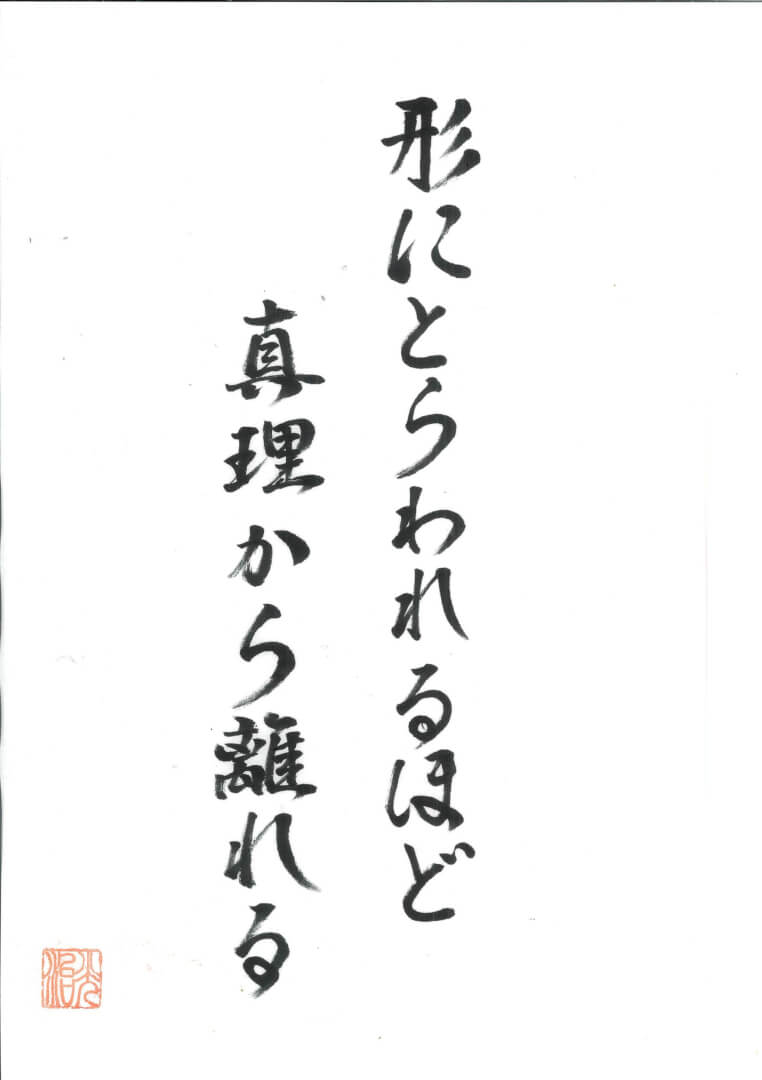 形にとらわれるほど
真理から離れる